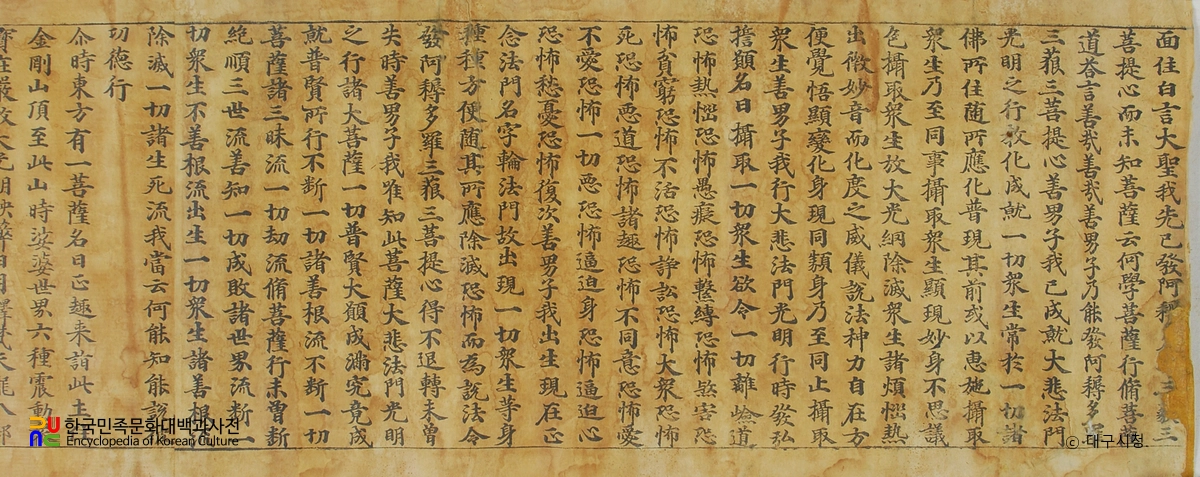 面住白言大聖我先已發阿耨三藐三
菩提心而未知菩薩云何學菩薩行脩菩薩
道荅言善哉善哉善男子乃能發阿耨多羅
三藐三菩提心善男子我已成就大悲法門
光明之行教化成就一切衆生常於一切諸
佛所住随所應化普現其前或以惠施攝取
衆生乃至同事攝取衆生顯現妙身不思議
色攝取衆生放大光網除滅衆生諸煩惱熱
出微妙音而化度之威儀說法神力自在方
便覺悟顯變化身現同類身乃至同止攝取
衆生善男子我行大悲法門光明行時發弘
擔願名曰攝取一切衆生欲令一切離嶮道
恐怖熱惱恐怖愚癡恐怖繫縛恐怖煞害恐
怖貧窮恐怖不活恐怖諍訟恐怖大衆恐怖
死恐怖惡道恐怖諸趣恐怖不同意恐怖愛
不愛恐怖一切惡恐怖逼迫身恐怖逼迫心
恐怖愁憂恐怖復次善男子我出生現在正
念法門名字輪法門故出現一切衆生等身
種種方便随其所應除滅恐怖而為說法令
發阿耨多羅三藐三菩提心得不退轉未曾
失時善男子我唯知此菩薩大悲法門光明
之行諸大菩薩一切普賢大願成滿究竟成
就普賢所行不断一切諸善根流不断一切
菩薩諸三昧流一切劫流脩菩薩行未曾断
絶順三世流善知一切成敗諸世界流断一
切衆生不善根流出生一切衆生諸善根
除滅一切諸生死流我當云何能知能說
功德行
尒時東方有一菩薩名曰正趣来詣此土
金剛山頂至此山時娑婆世界六種震動
한국민족문화대백과사전
Encyclopedia of Korean Culture
© 대구시청